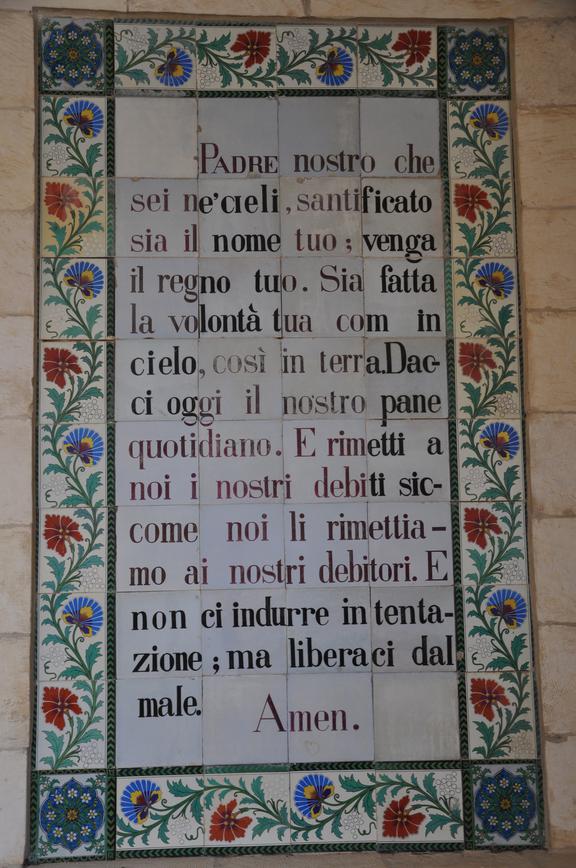 PADRE nostro che
sei ne'cieli, santificato
sia il nome tuo; venga
il regno tuo. Sia fatta
la volontà tua com in
cielo, così in terra.Dac-
ci oggi il nostro pane
quotidiano. E rimetti a
noi i nostri debiti sic-
come noi li rimettia-
mo ai nostri debitori. E
non ci indurre in tenta-
zione; ma liberaci dal
male.
Amen.